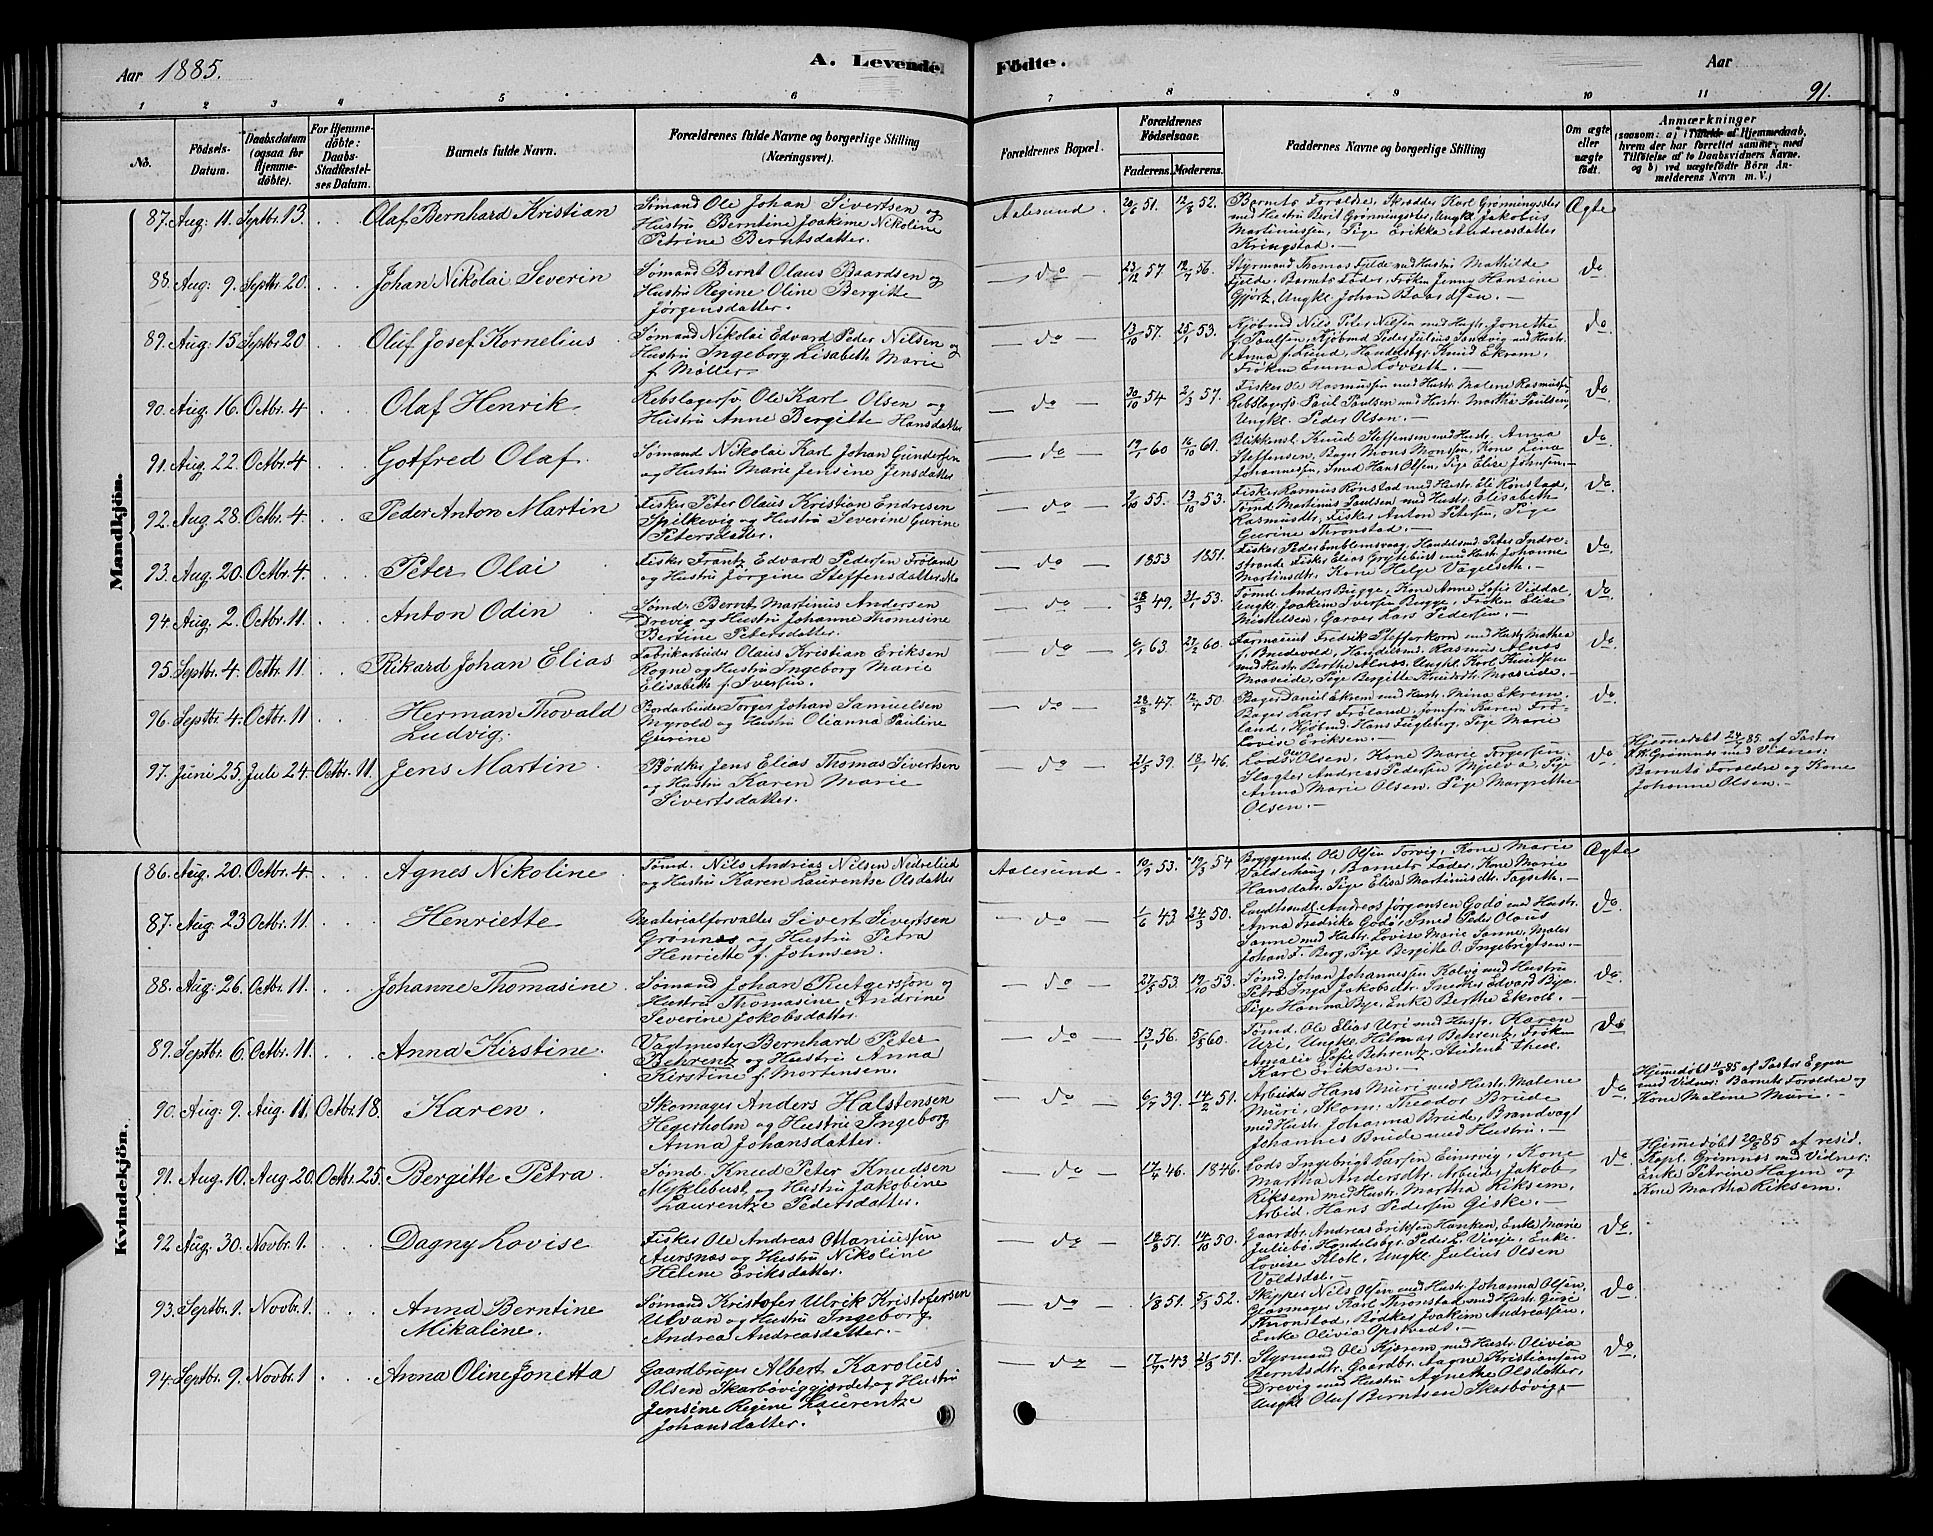 Aar 1885.
A. Levende
Fødte.
Aar
91.
1 2 3 4 5 6 7 8 9 10 11
No.
Fødsels-
Datum.
Daabsdatum
(ogsaa for
Hjemme-
døbte).
For Hjemme-
døbte:
Daabs-
Stadfæstel-
ses Datum.
Barnets fulde Navn.
Forældrenes fulde Navne og borgerlige Stilling
(Næringsvei).
Forældrenes Bopæl.
Forældrenes
Fødselsaar.
Faderens. Moderens.
Faddernes Navne og borgerlige Stilling
Om ægte
eller
uægte
født.
Anmærkninger
(saasom: a) i Tilfælde af Hjemmedaab,
hvem der har forrettet samme, med
Tilføielse af to Daabsvidners Navne.
og b) ved uægtefødte Børn An-
melderens Navn m. V.)
Mandkjön.
87. Aug: 11. Septbr. 13. Olaf Bernhard Kristian
Sømand Ole Johan Sivertsen og
Hustru Berntine Joakime Nikoline
Petrine Berntsdatter.
Aalesund. 20/6 51. 12/8 52.
Barnets Forældre, Skrædder Karl Grønningsæter
med Hustru Berit Grønningsæter, Ungkl. Jakobus
Martinussen, Pige Erikka Andreasdatter
Kringstad.
Ægte
88. Aug: 9. Septbr. 20. Johan Nikolai Severin
Sømand Bernt Olaus Baardsen og
Hustru Regine Oline Bergitte
Jørgensdatter.
do 23/12 57. 12/7 56.
Styrmand Thomas Fjelde med Hustru Mathilde
Fjelde, Barnets Fader, Frøken Jenny Hansine
Gjørtz, Ungkl. Johan Baardsen.
do
89. Aug: 15 Septbr 20 Oluf Josef Kornelius
Sømand Nikolai Edvard Peder Nilsen og
Hustru Ingeborg Lisabeth Marie
f. Møller.
do 13/10 57. 25/1 53.
Kjøbmd Nils Peter Nilsen med Hustr. Jonethe
f. Paulsen, Kjøbmd Peder Julius Sandvig med Hustr.
Anna f. Lund, Handelsbgr. Knud Ekrem,
Frøken Emma Løvseth.
do
90. Aug: 16. Octbr. 4 Olaf Henrik
Rebslagersv. Ole Karl Olsen og
Hustru Anne Bergitte Hansdatter
do 30/10 54 2/3 57.
Fisker Ole Rasmussen med Hustr. Malene Rasmussen,
Rebslagersv. Paul Paulsen med Hustr. Martha Paulsen,
Ungkl. Peder Olsen.
do
91. Aug. 22. Octbr. 4 Gotfred Olaf
Sømand Nikolai Karl Johan Gundersen
og Hustru Marie Jensine Jensdatter
do 19/1 60 16/10 61.
Blikkensl. Knud Steffensen med Hustr. Anna
Steffensen, Bager Mons Monsen, Kone Lena
Johannessen, Smed Hans Olsen, Pige Elise Johnsen.
do
92. Aug 28. Octbr. 4. Peder Anton Martin
Fisker Peter Olaus Kristian Endresen
Spilkevig og Hustru Severine Gurine
Petersdatter.
do 9/10 55. 13/10 53.
Fisker Rasmus Rønstad med Hustr. Eli Rønstad,
Tømd Martinus Paulsen med Hustr. Elisabeth
Rasmusdtr, Fisker Anton Petersen, Pige
Gurine Thronstad.
do
93. Aug. 20. Octbr. 4. Peter Olai
Fisker Frantz Edvard Pedersen Frøland
og Hustru Jørgine Steffensdatter
do 1853 1851.
Fisker Peder Emblemsvaag, Handelsmd. Peter Indre-
strande, Fisker Elias Gryteburst med Hustr. Johanne
Martinsdtr, Kone Helge Vagelseth.
do
94. Aug. 2. Octbr. 11. Anton Odin
Sømd. Bernt Martinus Andersen
Drevig og Hustru Johanne Thomesine
Bertine Petersdatter.
do 28/3 49, 21/1 53.
Tømd. Anders Bugge, Kone Anne Sofie Viddal,
Ungkl. Joakim Iversen Bugge, Frøken Elise
Mikkelsen, Garver Lars Pedersen.
do
95. Septbr. 4. Octbr. 11 Rikard Johan Elias
Fabrikarbeider Olaus Kristian Eriksen
Rogne og Hustru Ingeborg Marie
Elisabeth f. Iversen.
do 6/1 63. 27/2 60.
Farmaceut Fredrik Pfefferkorn med Hustr. Mathea
f. Bredevold, Handelsmd. Rasmus Alnæs
med Hustr. Berthe Alnæs, Ungkl. Karl Knutsen
Maaseide, Pige Bergitte Knudsdtr. Maaseide.
do
96. Septbr. 4. Octbr. 11. Herman Thovald
Ludvig.
Bordarbeider Torger Johan Samuelsen
Myrold og Hustru Olianna Pauline
Gurine
do 28/8 47. 12/4 50.
Bager Daniel Ekrem med Hustr. Mina Ekrem,
Bager Lars Frøland, Jomfru Karen Frø-
land, Kjøbmd. Hans Fugleberg, Pige Marie
Lovise Eriksen.
do
97. Juni 25. Juli 24. Octbr. 11. Jens Martin
Bødker Jens Elias Thomas Sivertsen
og Hustru Karen Marie
Sivertsdatter.
do 21/5 39. 18/1 46.
Lods Olsen, Kone Marie Torgersen,
Slagter Andreas Pedersen Mjelva, Pige
Anna Marie Olsen, Pige Margrethe
Olsen.
do
Hjemmedøbt 24/7 85. af Pastor
Grimnæs med Vidner:
Barnets Forældre og Kone
Johanne Olsen.
Kvindekjön.
86. Aug. 20. Octbr. 4 Agnes Nikoline
Tømd. Nils Andreas Nilsen Nedrelid
og Hustru Karen Laurentse Olsdatter
Aalesund. 10/9 53. 19/3 54
Bryggemd. Ole Olsen Torvig, Kone Marie
Valderhaug, Barnets Fader, Kone Marie
Hansdatr. Pige Elisa Martinusdtr. Tagseth.
Ægte
87. Aug: 23 Octbr. 11. Henriette
Materialforvalter Sivert Sivertsen
Grønnæs og Hustru Petra
Henriette f. Johnsen.
do 1/6 43. 24/3 50.
Landhandl. Andreas Jørgensen Godø med Hustr.
Anna Fredrike Godø, Smed Peder Olaus
Sanne med Hustr. Lovise Marie Sanne, Maler
Johan F. Berg, Pige Bergitte O. Ingebrigtsen.
do
88. Aug: 26. Octbr. 11. Johanne Thomasine
Sømand Johan Rutgersson og
Hustru Thomasine Andrine
Severine Jakobsdatter.
do 27/5 53. 19/10 53.
Sømd. Johan Johannessen Kalvø med Hustru
Petra Inga Jakobsdtr. Snedker Edvard Bye,
Pige Hanna Bye, Enke Berthe Ekroll.
do
89. Septbr. 6. Octbr. 11. Anna Kirstine
Vagtmester Bernhard Peter
Behrentz og Hustru Anna
Kirstine f. Mortensen.
do 13/1 56. 5/8 60.
Tømd. Ole Elias Uri med Hustr. Karen
Uri, Ungkl. Hilmar Behrentz, Frøken
Amalie Sofie Behrentz, Student Theol.
Karl Eriksen.
do
90. Aug: 9. Aug: 11. Octbr. 18. Karen.
Skomager Anders Halstensen
Hegerholm og Hustru Ingeborg
Anna Johansdatter.
do 6/7 39. 14/2 51.
Arbeider Hans Muri med Hustr. Malene
Muri, Skom: Theodor Brude
med Hustr. Johanna Brude, Brandvagt
Johannes Brude med Hustru.
do
Hjemmedøbt 11/8 85 af Pastor Eggen
med Vidner: Barnets Forældre og
Kone Malene Muri.
91. Aug. 10. Aug 20. Octbr. 25. Bergitte Petra.
Sømd. Knud Peter Knudsen
Myklebust og Hustru Jakobine
Laurentze Pedersdatter.
do 17/4 46. 1846.
Lods Ingebrigt Larsen Einervig, Kone
Martha Andersdtr. Arbeider Jakob
Riksem med Hustr. Martha Riksem,
Arbid. Hans Pedersen Giske.
do
Hjemmedøbt 20/8 85 af resid.
Kapl. Grimnæs med Vidner:
Enke Petrine Hagen og
Kone Martha Riksem.
92 Aug. 30. Novbr. 1. Dagny Lovise
Fisker Ole Andreas Ottaniussen
Aursnæs og Hustru Nikoline
Helene Eriksdatter.
do 18/8 51. 14/10 50.
Gaardbr. Andreas Eriksen Hanken, Enke Marie
Juliebø, Handelsbgr. Peder L. Vinje, Enke
Lovise Klok, Ungkl. Julius Olsen
Voldsdal.
do
93. Septbr. 1. Novbr. 1. Anna Berntine
Mikaline.
Sømand Kristofer Ulrik Kristofersen
Utvær og Hustru Ingeborg
Andrea Andreasdatter.
do 1/8 51. 5/3 52.
Skipper Nils Olsen med Hustr. Johanna Olsen,
Glasmager Karl Thronstad med Hustr. Guri
Thronstad, Bødker Joakim Andreassen,
Enke Olivia Opstvedt.
do
94. Septbr. 9. Novbr. 1 Anna Oline Jonetta
Gaardbruger Albert Karolus
Olsen Skarbøviggjærdet og Hustru
Jensine Regine Laurentze
Johansdatter.
do 17/7 43 21/3 51.
Styrmand Ole Kjærem med Hustr. Olivia
Berntsdtr. Gaardbr. Aagne Kristiansen
Drevig med Hustru Agnethe Olsdatter,
Ungkl Oluf Berntsen Skarbøvig.
do.